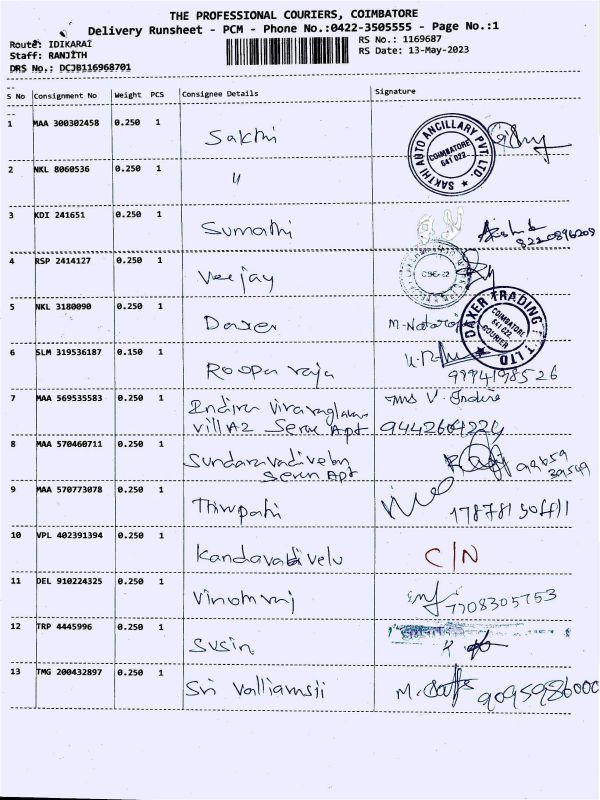 THE PROFESSIONAL COURIERS, COIMBATORE
Delivery Runsheet - PCM - Phone No.:0422-3505555 - Page No.:1
Route: IDIKARAI
RS No.: 1169687
Staff: RANJITH
RS Date: 13-May-2023
DRS No.: DCJB116968701
S No Consignment No Weight PCS Consignee Details Signature
1 MAA 300302458 0.250 1 Sakthi
SAKTHI AUTO ANCILLARY PVT. LTD. COIMBATORE 641 022
2 NKL 8060536 0.250 1 "
3 KDI 241651 0.250 1 Sumathi
4 RSP 2414127 0.250 1 Veejay
CBE-22
5 NKL 3180090 0.250 1 Daxer
DAXER TRADING COIMBATORE 641 022. COURIER LTD
6 SLM 319536187 0.150 1 Roopa raja
9994198526
7 MAA 569535583 0.250 1 Indira Viraraghavan
Villa2 Serene Apt
8 MAA 570460711 0.250 1 Sundaravadivelu
Apt
9 MAA 570773078 0.250 1 Thirupathi
10 VPL 402391394 0.250 1 Kandavadivelu C/N
11 DEL 910224325 0.250 1 Vinothraj 7708305753
12 TRP 4445996 0.250 1 Susin
13 TMG 200432897 0.250 1 Sri Valliamsii